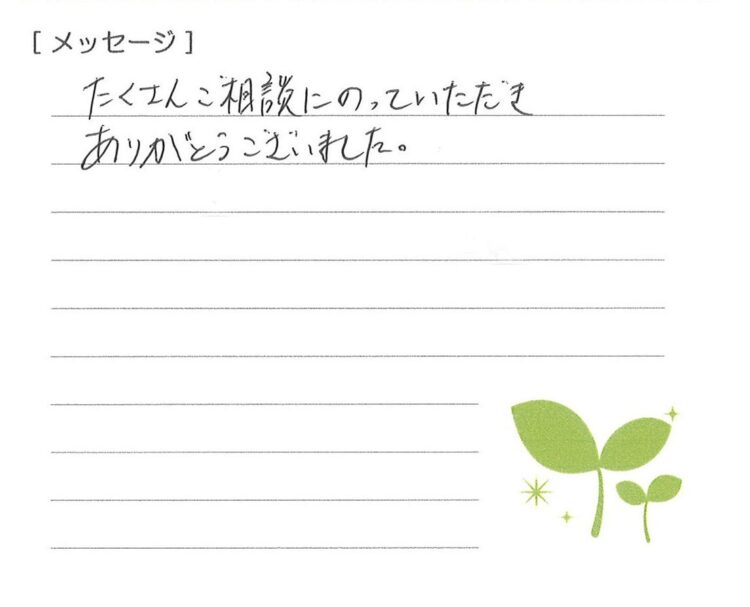 [ メッセージ ]
たくさんご相談にのっていただき
ありがとうございました。